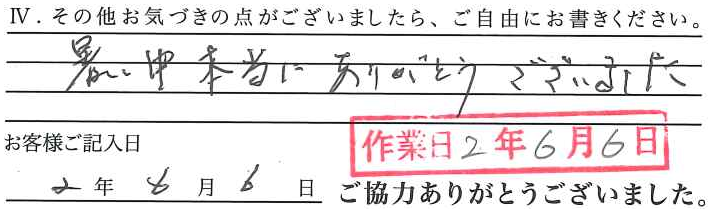 Ⅳ．その他お気づきの点がございましたら、ご自由にお書きください。
暑い中本当にありがとうございました
お客様ご記入日
作業日2年6月6日
2年6月6日
ご協力ありがとうございました。